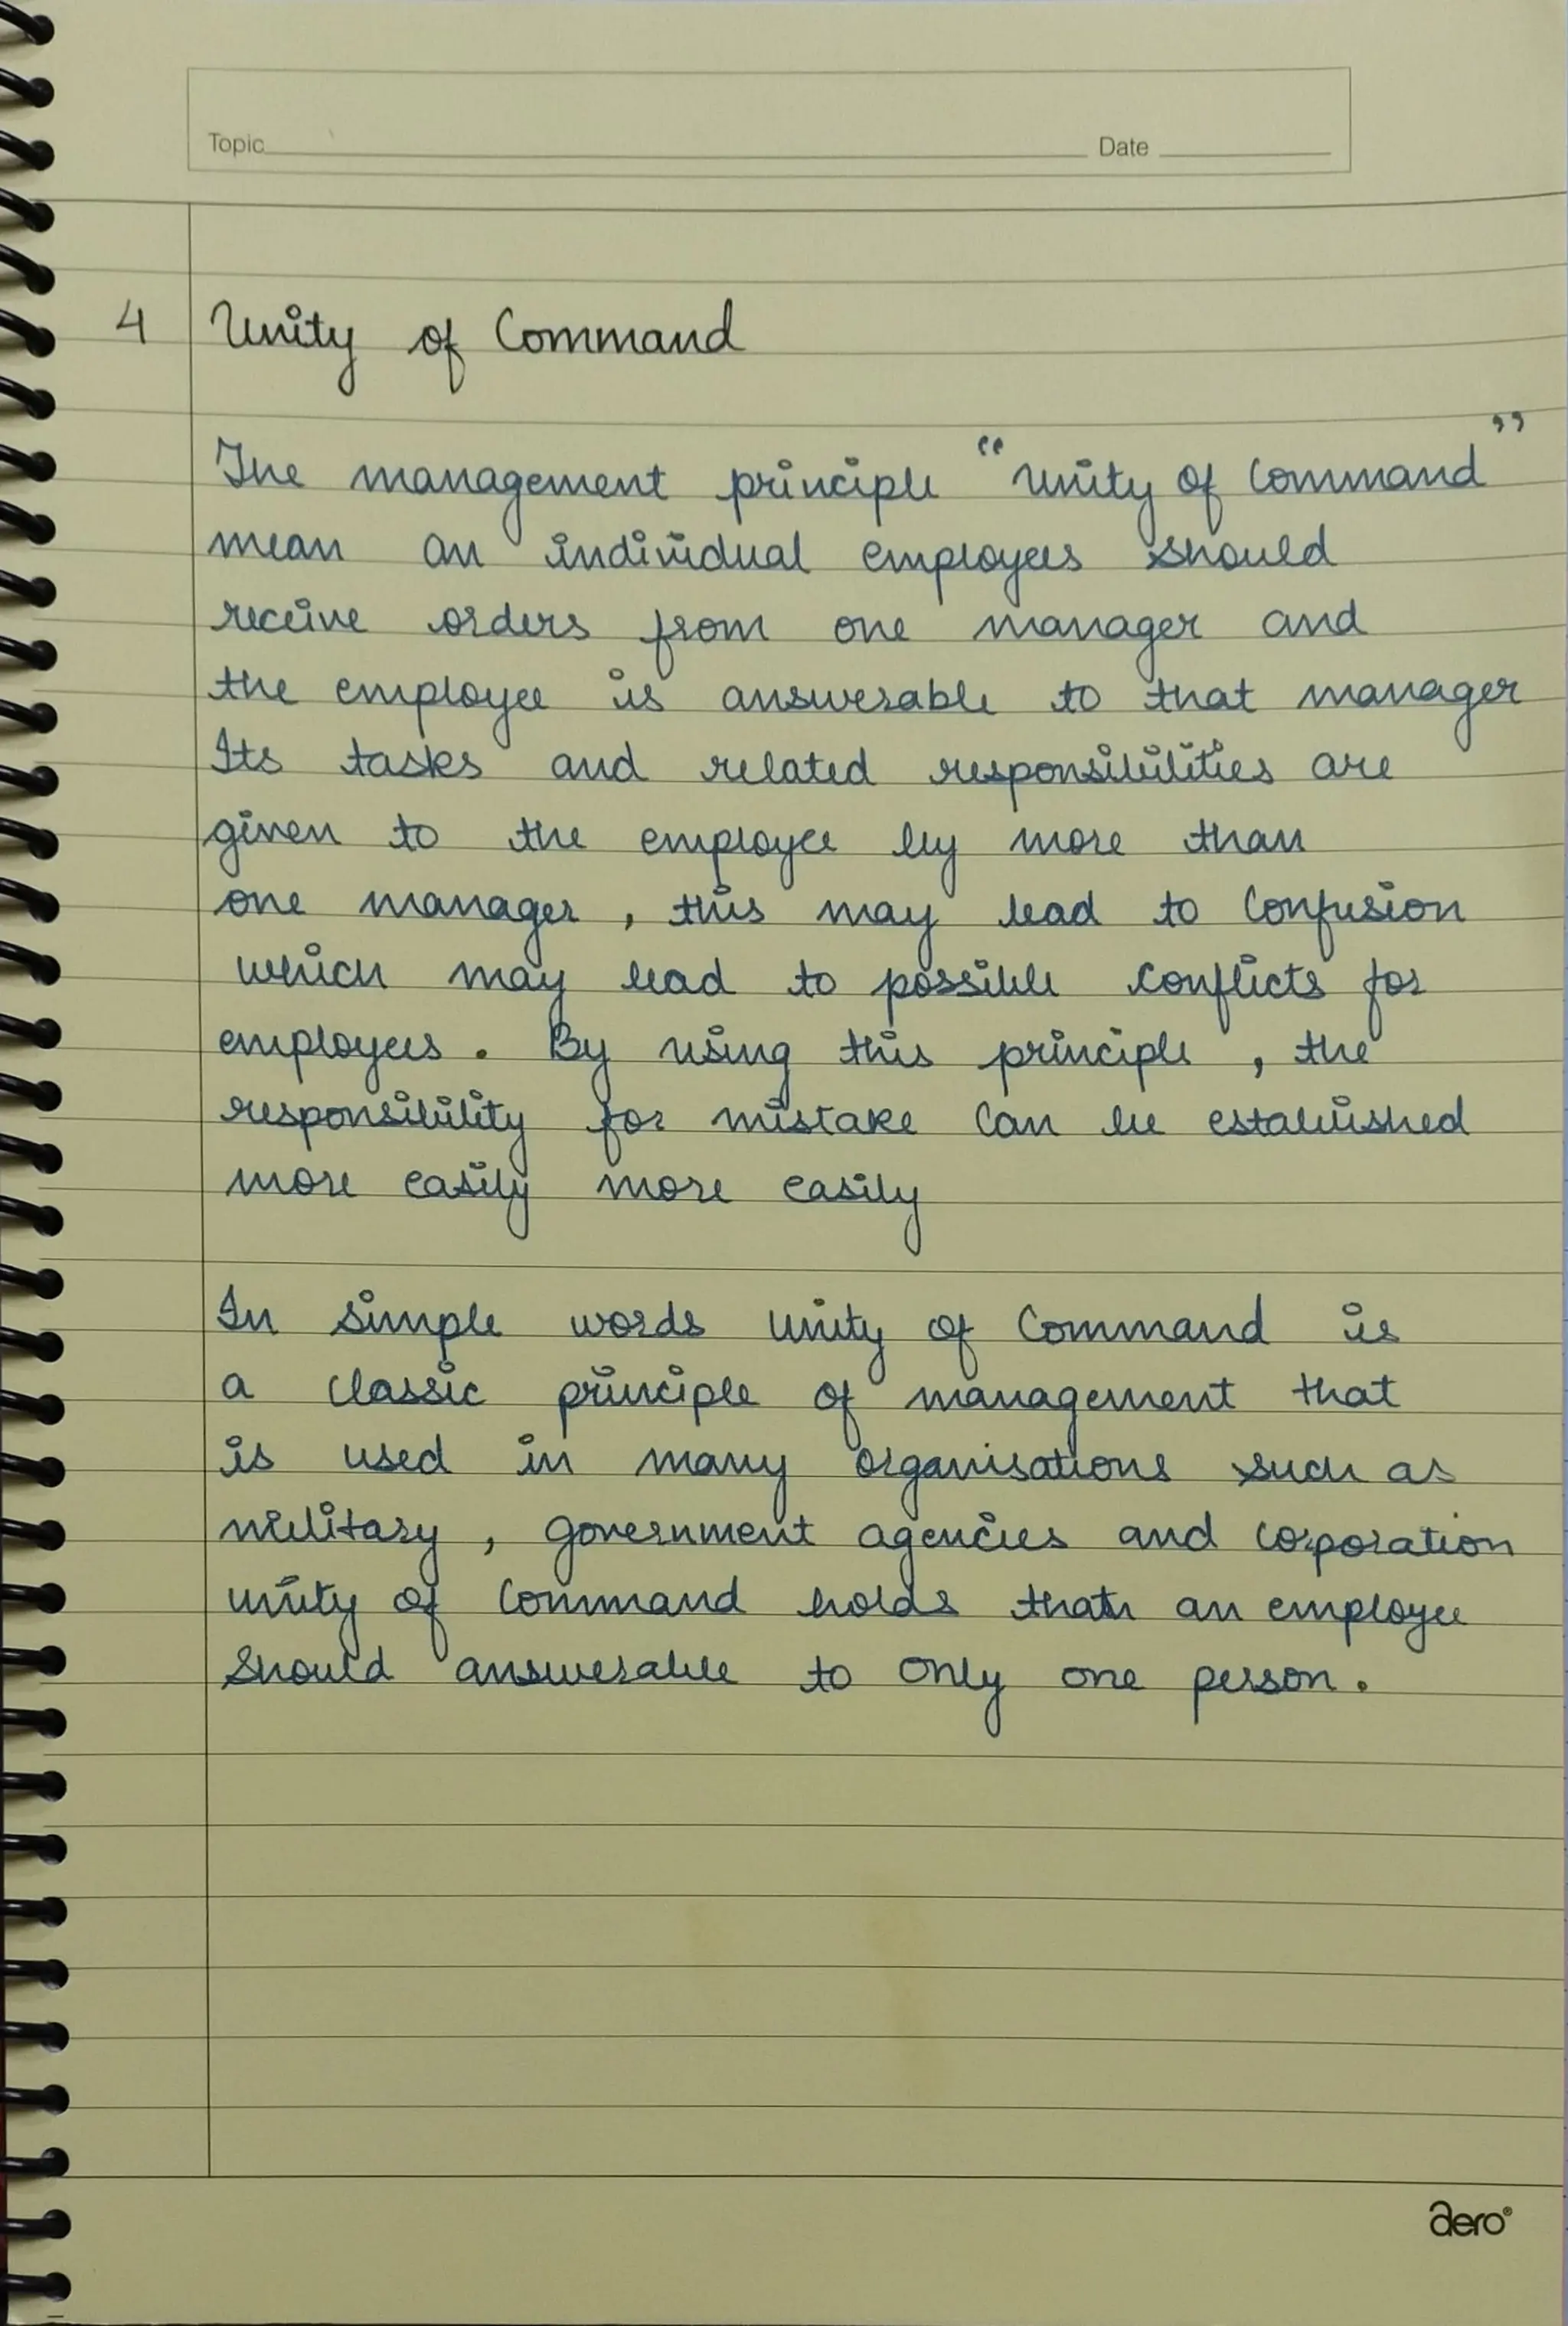 Topic Date
4 Unity of Command
The management principle “unity of Command”
mean an individual employees should
receive orders from one manager and
the employee is answerable to that manager
Its tasks and related responsibilities are
given to the employee by more than
one manager, this may lead to Confusion
which may lead to possible Conflicts for
employees. By using this principle, the
responsibility for mistake Can be established
more easily more easily
In simple words unity of Command is
a classic principle of management that
is used in many organisations such as
military, government agencies and corporation
unity of Command holds that an employee
should answerable to only one person.
aero®